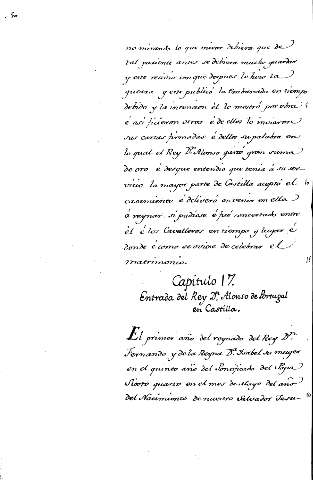 no mirando lo que mirar debiera que de
tal pariente antes se debiera mucho guardar
y este recibió con que despues le hizo la
guerra y este publicó la Embaxada en tiempo
debido y la intencion él lo mostró por obra
é asi ficieron otros é de ellos le imviaron
sus cartas firmadas é dellos su palabra en
lo qual el Rey Dn. Alonso gastó gran suma
de oro é desque entendió que tenia á su ser-
vicio la mayor parte de Castilla aceptó el
casamiento é deliveró en venir en ella
á reynar si pudiese é fué concertado entre
él é los Cavalleros en tiempo y lugar é
donde é como se oviese de celebrar el
matrimonio.
Capítulo 17.
Entrada del Rey Dn. Alonso de Portugal
en Castilla.
El primer año del reynado del Rey Dn.
Fernando y de la Reyna Da. Isabel su muger
en el quinto año del Pontificado del Papa
Sixto quarto en el mes de Mayo del año
del Nacimiento de nuestro Salvador Jesu-